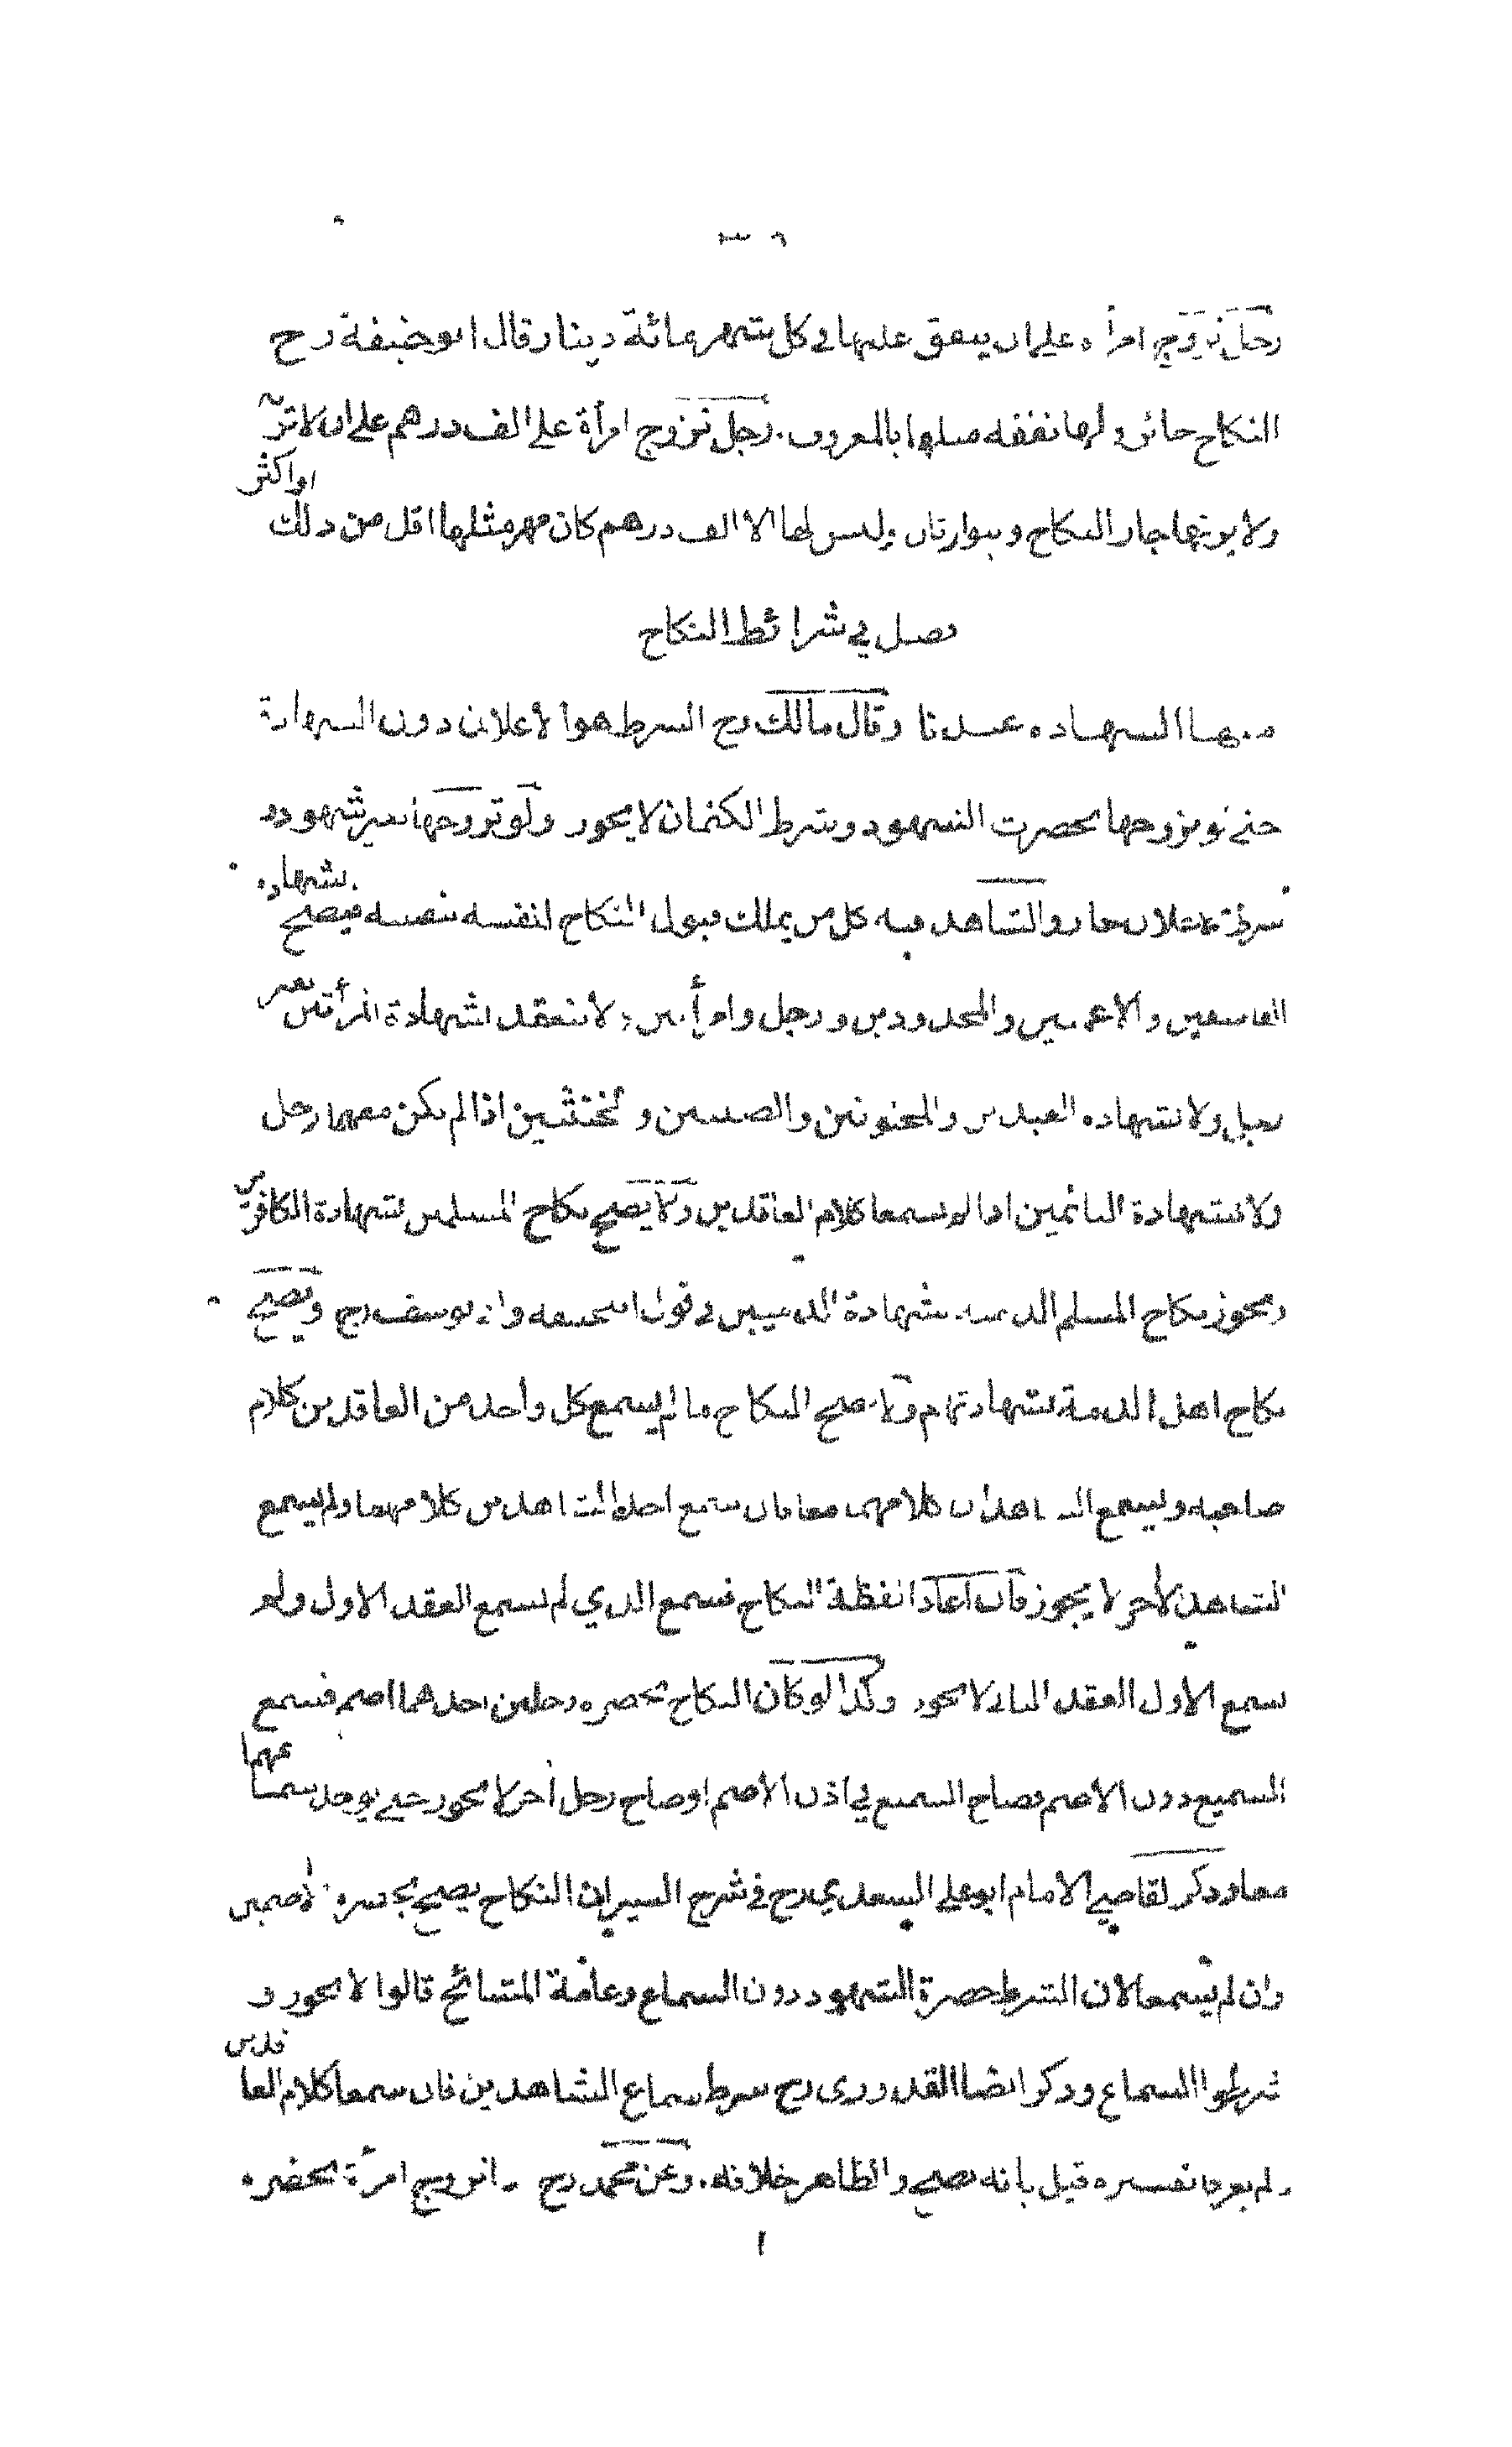 رجل تزوج امرأة على ان ينفق عليها في كل شهر مائة دينار قال ابو حنيفة رح
النكاح جائز ولها نفقة مثلها بالمعروف. رجل تزوج امرأة على الف درهم على ان لا ترث
ولا يورثها جاز النكاح ويتوارثان وليس لها الا الف درهم كان مهر مثلها اقل من ذلك او اكثر
فصل في شرائط النكاح
منها الشهادة عندنا وقال مالك رح الشرط هو الاعلان دون الشهادة
حتى لو تزوجها بحضرت الشهود وشرط الكتمان لا يجوز ولو تزوجها بغير شهود و
شرط الاعلان جاز والشاهد فيه كل من يملك قبول النكاح لنفسه بنفسه فيصح بشهادة
الفاسقين والاعميين والمحدودين ورجل وامرأتين ولا ينعقد بشهادة المرأتين بغير
رجل ولا بشهادة العبدين والمجنونين والصبيين و الخنثيين اذا لم يكن معهما رجل
ولا بشهادة النائمين اذا لم يسمعا كلام العاقدين ولا يصح نكاح المسلمين بشهادة الكافرين
ويجوز نكاح المسلم الذمية بشهادة الذميين في قول ابي حنيفة وابي يوسف رح ويصح
نكاح اهل الذمة بشهادتهم ولا يصح النكاح ما لم يسمع كل واحد من العاقدين كلام
صاحبه ويسمع الشاهدان كلامهما معا فان سمع احد الشاهدين كلامهما ولم يسمع
الشاهد الآخر لا يجوز فان اعاد لفظة النكاح فسمع الذي لم يسمع العقد الاول ولم
يسمع الاول العقد الثاني لا يجوز وكذا لو كان النكاح بحضرة رجلين احدهما اصم فسمع
السميع دون الاصم فصاح السميع في اذن الاصم او صاح رجل آخر لا يجوز حتى يوجد سماعهما
معا وذكر القاضي الامام ابو علي السعدي رح في شرح السير ان النكاح يصح بحضرة الاصمين
وان لم يسمعا لان الشرط حضرة الشهود دون السماع وعامة المشائخ قالوا لا يجوز و
شرطوا السماع وذكر ايضا القدوري رح شرط سماع الشاهدين فان سمعا كلام العاقدين
ولم يعرفا تفسيره قيل بأنه يصح والظاهر خلافه. وعن محمد رح اذا تزوج امرأة بحضرة